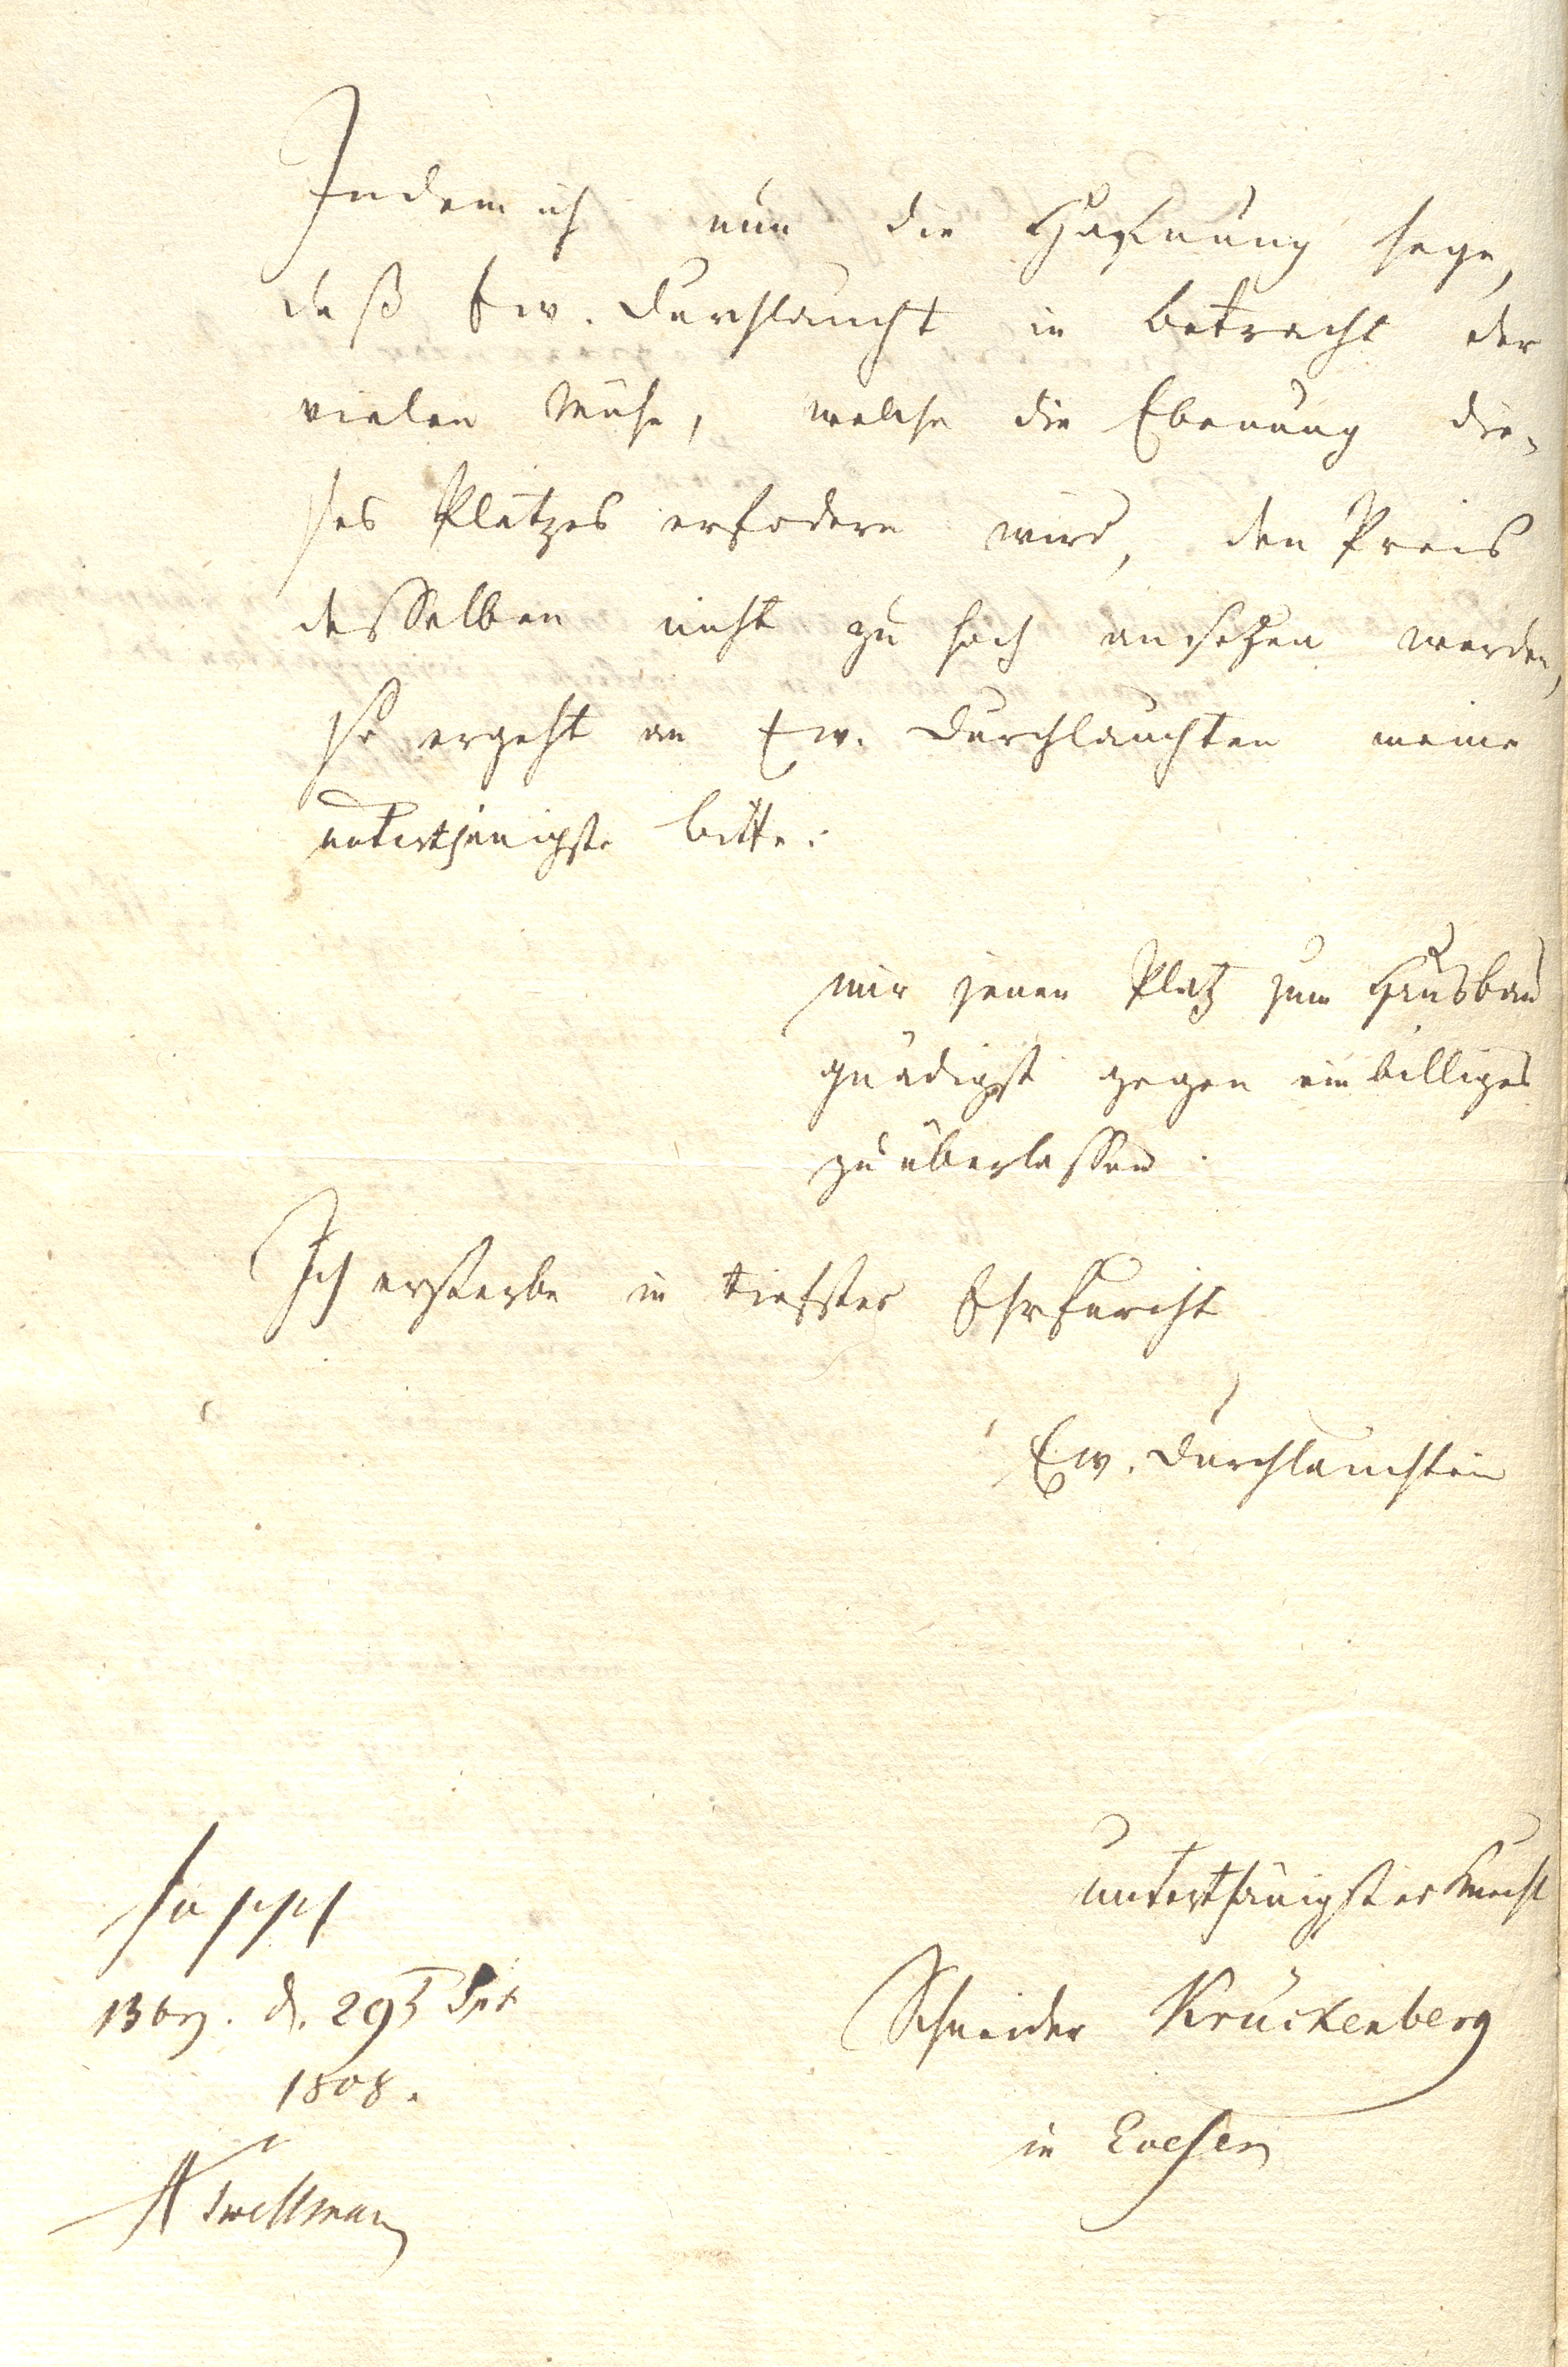 Indem ich nun die Hofnung hege,
daß Ew. Durchlaucht in betracht der
vielen Mühe, welche die Ebenung die-
ses Platzes erfodern wird, den Preis
desselben nicht zu hoch ansetzen werden,
so ergeht an Ew. Durchlauchten meine
unterthänigste bitte:
mir jenen Platz zum Hausbau
gnädigst gegen ein billiges
zu überlassen.
Ich ersterbe in tiefster Ehrfurcht
Ew. Durchlauchten
unterthänigster Knecht
Schneider Krückenberg
in Evesen
supps
Bbg. d. 29t
1808.